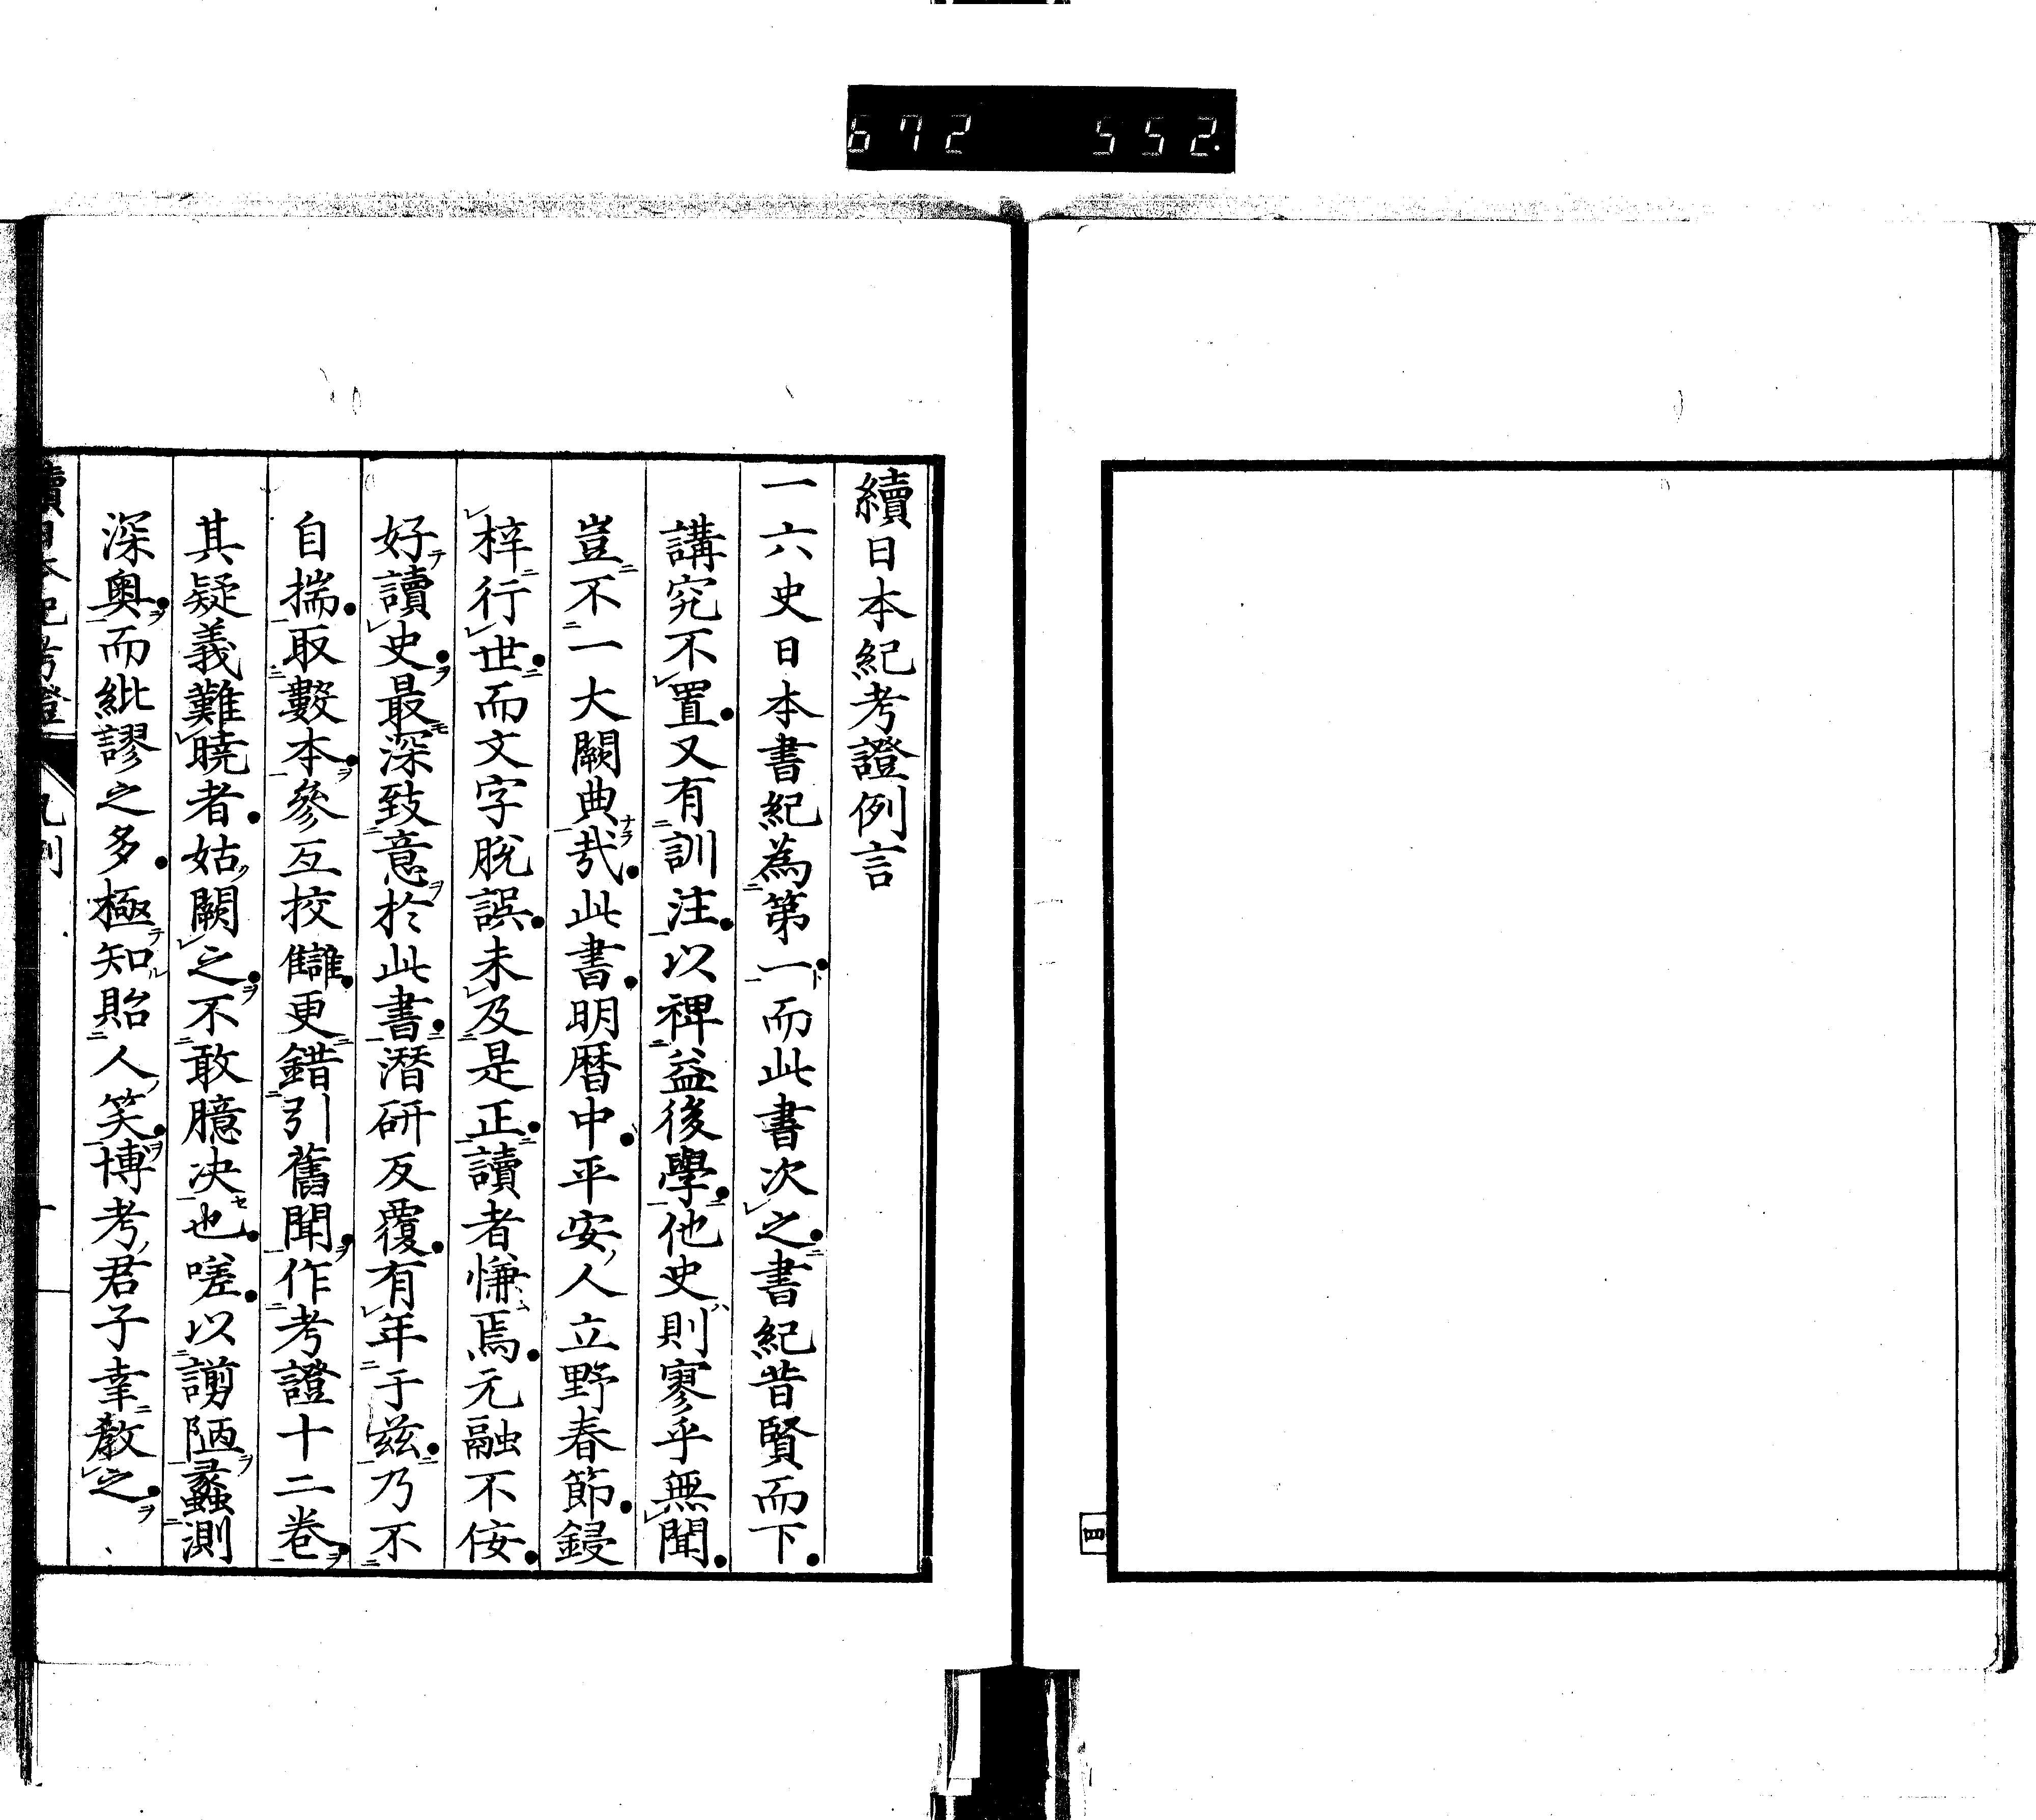 672 552.
四
續日本紀考證例言
一六史日本書紀為第一而此書次之書紀昔賢而下
講究不置又有訓注以裨益後學他史則寥乎無聞
豈不一大闕典㦲此書明暦中平安人立野春節鋟
梓行世而文字脫誤未及是正讀者慊焉元融不侫
好讀史最深致意於此書潛研反覆有年于茲乃不
自揣取數本參互挍讎更錯引舊聞作考證十二卷
其疑義難曉者姑闕之不敢臆決也嗟以謭陋蠡測
深奧而紕謬之多極知貽人笑博考君子幸教之
續日本紀考證 凡例